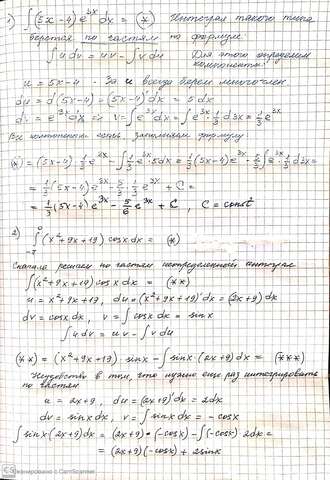 1) ∫(5x-4)e^{3x}dx = (*) Интеграл такого типа
берется по частям по формуле:
∫udv = uv - ∫vdu Для этого определим
компоненты:
u = 5x-4 - За u всегда берем многочлен
du = d(5x-4) = (5x-4)'dx = 5dx
dv = e^{3x}dx ⇒ v = ∫e^{3x}dx = ∫e^{3x}·1/3 d3x = 1/3 e^{3x}
Все компоненты есть, заполняем формулу
(*) = (5x-4)·1/3 e^{3x} - ∫1/3 e^{3x}·5dx = 1/3(5x-4)e^{3x} - 5/3∫e^{3x}·1/3 d3x =
= 1/3(5x-4)e^{3x} - 5/3·1/3 e^{3x} + C =
= 1/3(5x-4)e^{3x} - 5/6 e^{3x} + C, C = const
2) ∫(x²+9x+19)cosxdx = (*)
Сначала решаем по частям неопределенный интеграл
∫(x²+9x+19)cosxdx = (**)
u = x²+9x+19, du = (x²+9x+19)'dx = (2x+9)dx
dv = cosxdx, v = ∫cosxdx = sinx
∫udv = uv - ∫vdu
(**) = (x²+9x+19)·sinx - ∫sinx·(2x+9)dx = (***)
в том, что нужно еще раз интегрировать
по частям
u = 2x+9, du = (2x+9)'dx = 2dx
dv = sinxdx, v = ∫sinxdx = -cosx
∫sinx(2x+9)dx = (2x+9)·(-cosx) - ∫(-cosx)2dx =
= (2x+9)(-cosx) + 2sinx
CS Сканировано с CamScanner